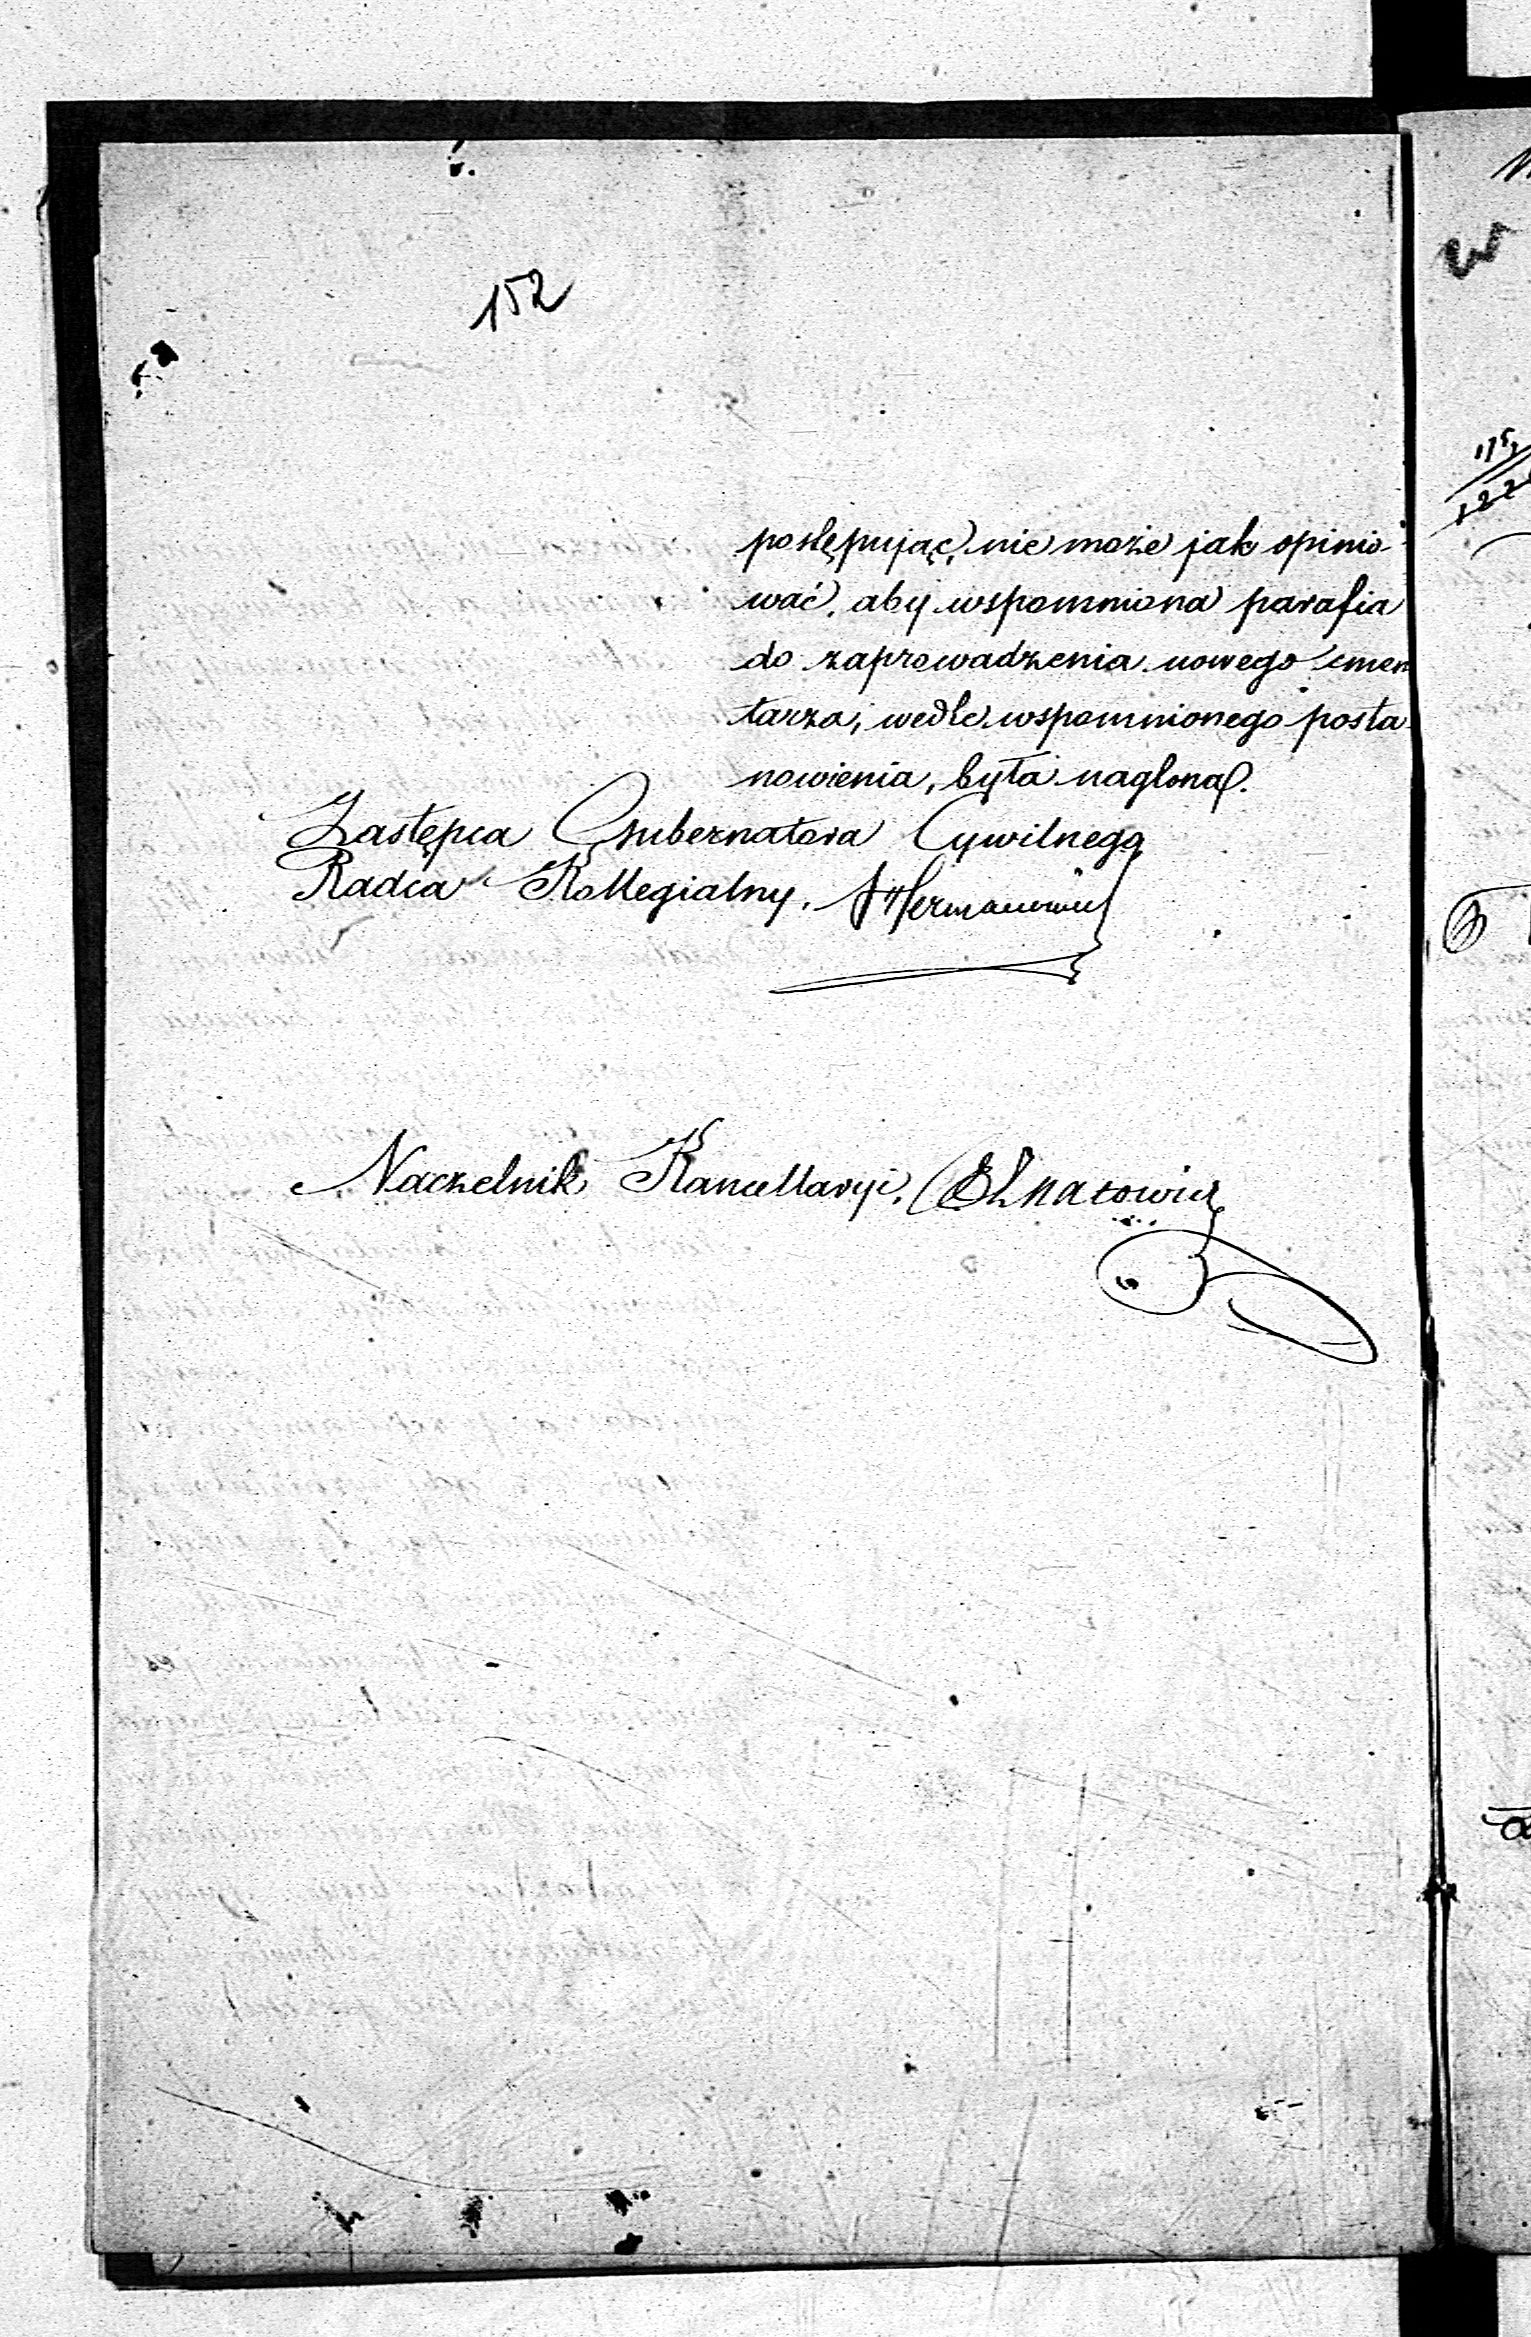 152
postępując, nie może jak opinio-
wać, aby wspomniona parafia
do zaprowadzenia nowego cmen
tarza, wedle wspomnionego posta
nowienia, była naglona.
Zastępca Gubernatora Cywilnego
Radca Kollegialny, Hermanowicz
Naczelnik Kancellaryi,